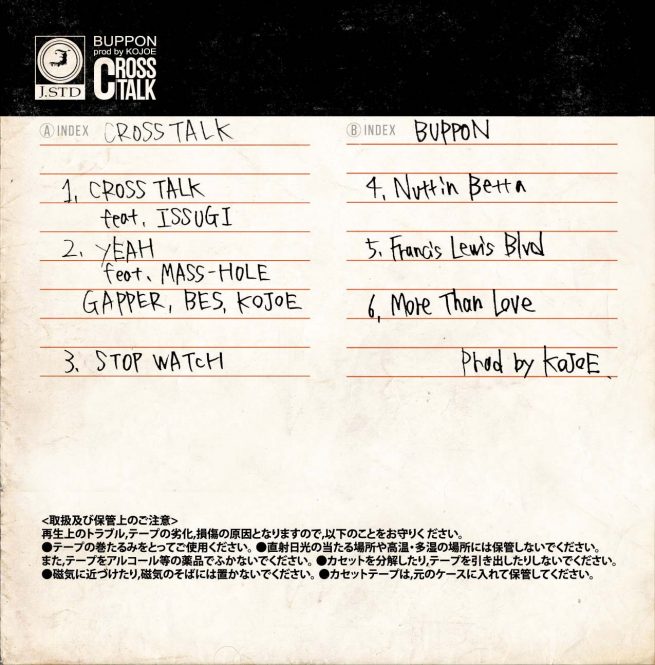 BUPPON
prod by KOJOE
CROSS TALK
J.STD
Ⓐ INDEX CROSS TALK
1, CROSS TALK
feat, ISSUGI
2. YEAH
feat. MASS-HOLE
GAPPER, BES, KOJOE
3. STOP WATCH
Ⓑ INDEX BUPPON
4, Nuttin Betta
5. Francis Lewis Blvd
6, More Than Love
Prod by KOJOE.
<取扱及び保管上のご注意>
再生上のトラブル,テープの劣化,損傷の原因となりますので,以下のことをお守りください。
●テープの巻たるみをとってご使用ください。●直射日光の当たる場所や高温・多湿の場所には保管しないでください。
また,テープをアルコール等の薬品でふかないでください。●カセットを分解したり,テープを引き出したりしないでください。
●磁気に近づけたり,磁気のそばには置かないでください。●カセットテープは,元のケースに入れて保管してください。